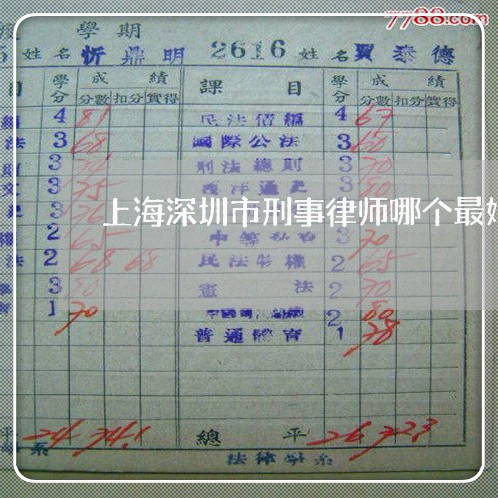 7788.com
學期
姓名 忻鼎明 2616 姓名 賈泰德
目 學分 成績 課目 學分 成績
分數 扣分 實得 分數 扣分 實得
4 81 民法債編 4 67
法 3 68 國際公法 3 60
3 刑法總則 3 70
文 3 75 西洋通史 3 80
3 76
上海深圳市刑事律师哪个最好
2 65 3 70
法 2 68 68 民法物權 2 65
3 80 憲法 2 70
育 1 70 2 80
普通體育 1 78
平 24 74.1 總平 26 72.3
系 法律學系